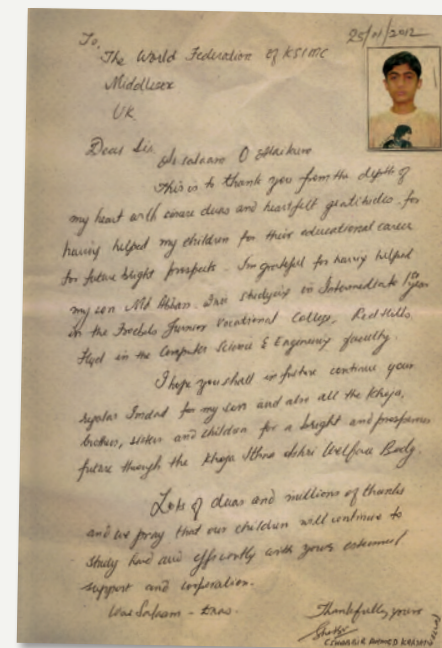 25/01/2012
To,
The World Federation of KSIMC
Middlesex
UK
Dear Sir,
As salaamo O Alaikum
This is to thank you from the depth of
my heart with sincere duas and heartfelt gratitudes for
having helped my children for their educational career
for future bright prospects. Im grateful for having helped
my son Md Abbas. Inn studying in Intermediate 1st year
in the Junior Vocational College, Red Hills.
Hyd in the Computer Science & Engineering faculty.
I hope you shall in future continue your
regular Imdad for my son and also all the Khoja,
brothers, sisters and children for a bright and prosperous
future through the Khoja Ithna Ashri Welfare Body.
Lots of duas and millions of thanks
and we pray that our children will continue to
study hard and efficiently with your esteemed
support and cooperation.
Was Salaam -
Thankfully, yours
AHMED